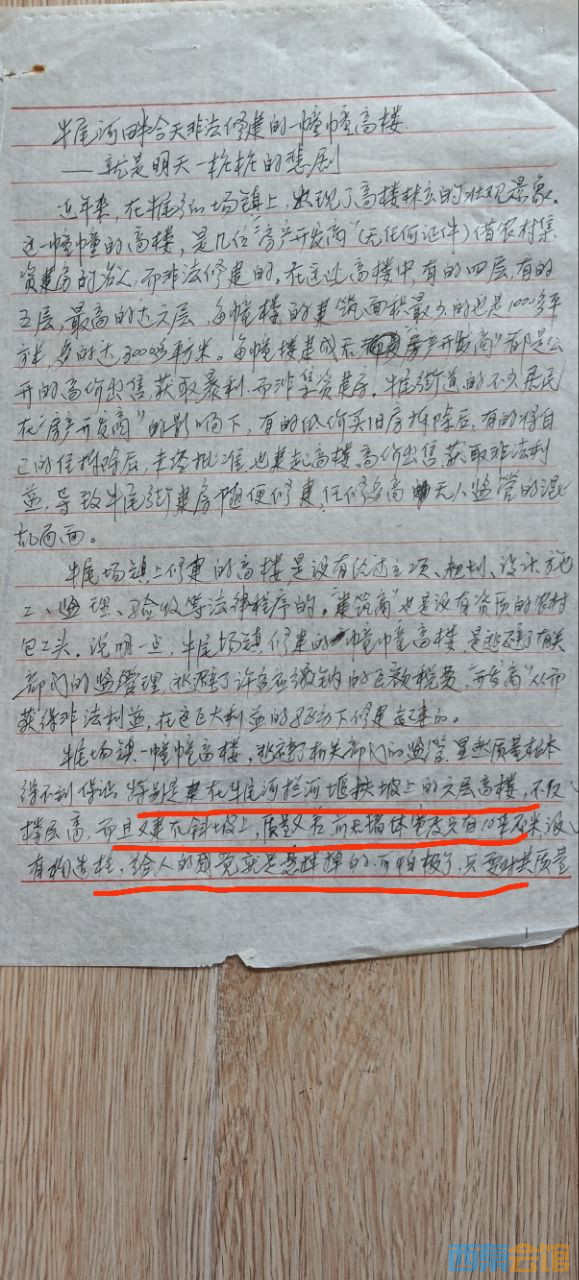 牛尾河畔今天非法修建的一幢幢高楼
——就是明天一桩桩的悲剧
近年来，在牛尾河场镇上，出现了高楼林立的壮观景象。
这一幢幢的高楼，是几位"房产开发商"（无任何证件）借农村集
资建房的名义，而非法修建的。在这些高楼中，有的四层，有的
五层，最高的达六层，每幢楼的建筑面积最少的也是1000多平
方米，多的达3000多平方米。每幢楼建成后，"房产开发商"都是公
开的高价出售，获取暴利，而非集资建房。牛尾街道的不少居民
在"房产开发商"的影响下，有的低价买旧房拆除后，有的将自
己的住房拆除后，未经批准，也建起高楼高价出售，获取非法利
益，导致牛尾街建房随便修建，任修多高无人监管的混
乱局面。
牛尾场镇上修建的高楼，是没有经过立项、规划、设计、施
工、监理、验收等法律程序的。"建筑商"也是没有资质的农村
包工头。说明一点，牛尾场镇修建的一幢幢高楼是逃避了有关
部门的监管理，逃避了许多应缴纳的巨额税费，"开发商"从而
获得非法利益，在这巨大利益的驱动下修建起来的。
牛尾场镇一幢幢高楼，逃避了相关部门的监管，显然质量根本
得不到保证，特别是建在牛尾河拦河堰挟坡上的六层高楼，不仅
楼层高，而且又建在斜坡上，质量又差，前后墙体宽度只有12厘米，没
有构造柱，给人的感觉就是悬的，可怕极了，只要对其质量
1
西祠会馆